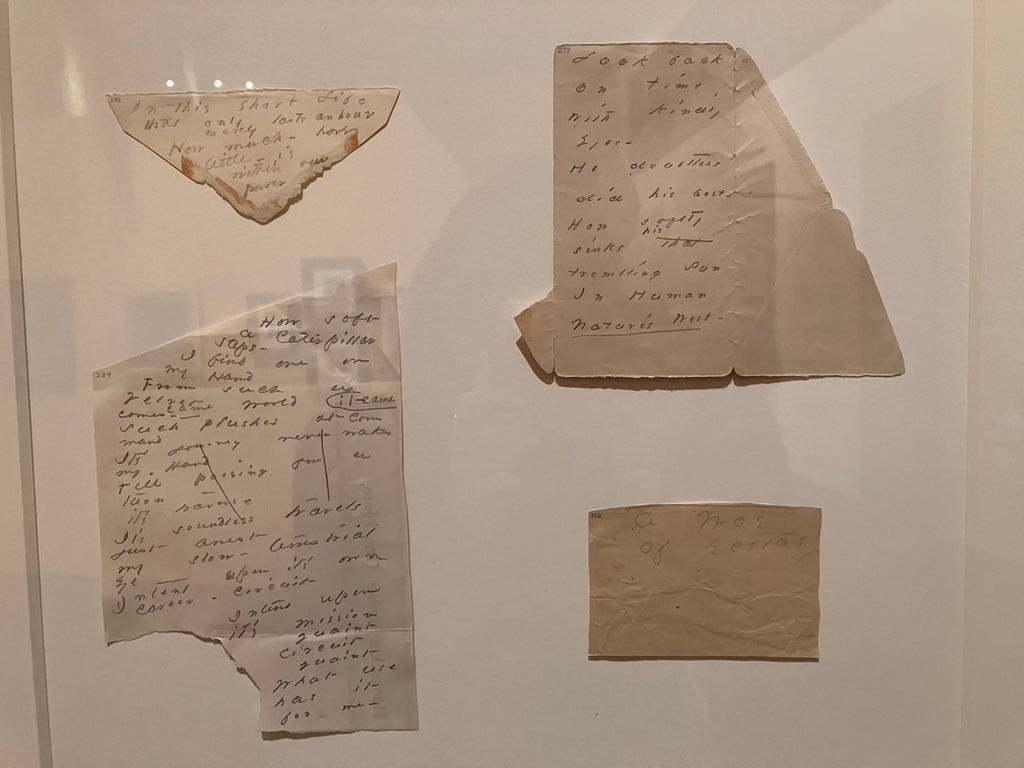 252
In this short Life
that only lasts an hour
merely
How much - how
little - is
within our
power
229
How soft
a Caterpillar
steps -
I find one on
my Hand
From such a
velvet world
comes came it came
Such plushes at Com
mand
Its journey never wakes
my Hand
Till poising for a
turn
it's
It's soundless travels
just arrest
my slow - terrestrial
Eye
Intent upon its own
career - circuit
Intent upon
it's mission
quaint
circuit
quaint -
What use
has it
for me -
271
Look back
on time,
With kindly
Eyes -
He doubtless
did his best -
How softly
his
sinks that
trembling Sun
In Human
Nature's West -
112
A Woe
of Ecstasy